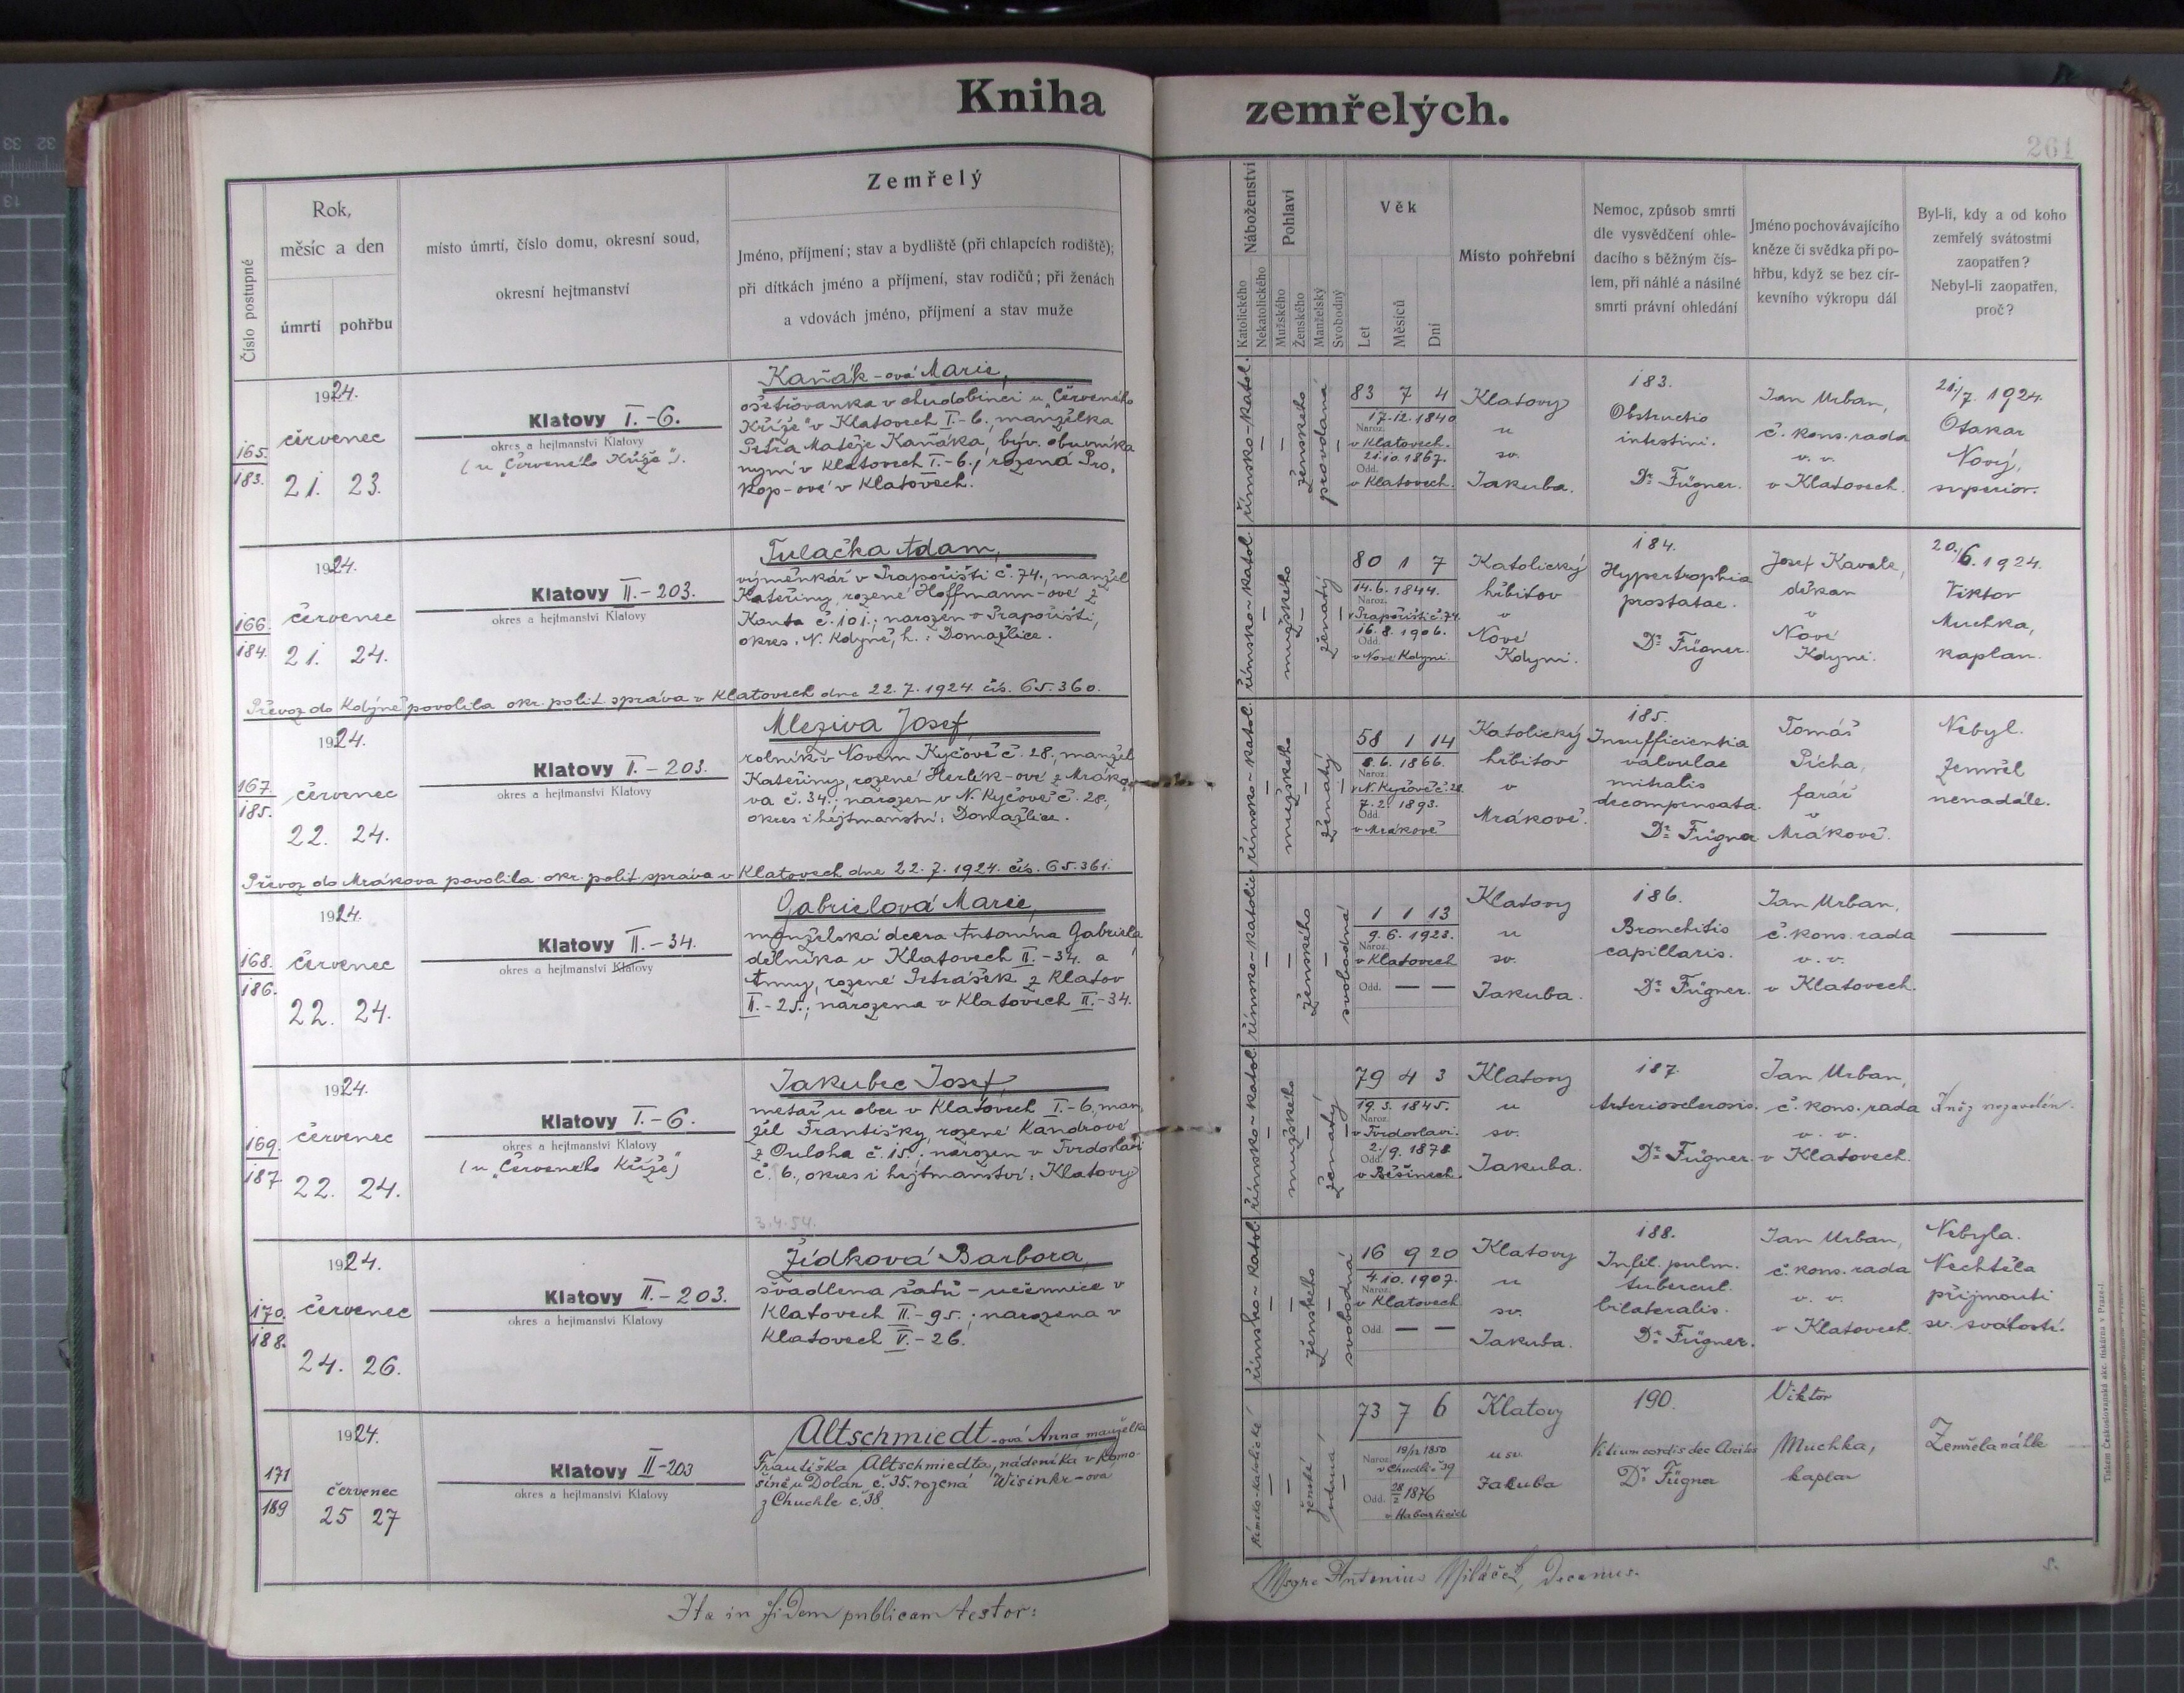 Kniha zemřelých.
261
Číslo postupné
Rok,
měsíc a den
úmrtí
pohřbu
místo úmrtí, číslo domu, okresní soud,
okresní hejtmanství
Zemřelý
Jméno, příjmení; stav a bydliště (při chlapcích rodiště);
při dítkách jméno a příjmení, stav rodičů; při ženách
a vdovách jméno, příjmení a stav muže
Náboženství
Katolického
Nekatolického
Pohlaví
Mužského
Ženského
Manželský
Svobodný
Věk
Let
Měsíců
Dní
Místo pohřební
Nemoc, způsob smrti
dle vysvědčení ohle-
dacího s běžným čís-
lem, při náhlé a násilné
smrti právní ohledání
Jméno pochovávajícího
kněze či svědka při po-
hřbu, když se bez cír-
kevního výkropu dál
Byl-li, kdy a od koho
zemřelý svátostmi
zaopatřen?
Nebyl-li zaopatřen,
proč?
165.
183.
1924.
červenec
21. 23.
Klatovy I.-6.
okres a hejtmanství Klatovy
(u „Červeného Kříže").
Kaňák-ová Marie,
ošetřovanka v chudobinci u „Červeného
Kříže" v Klatovech I.-6., manželka
Petra Matěje Kaňáka, býv. obuvníka
nyní v Klatovech I.-6.; rozená Pro-
kop-ové v Klatovech.
římsko-katol.
–
–
ženského
provdaná
–
83 7 4
17.12.1840
Naroz.
v Klatovech.
21.10.1867.
Odd.
v Klatovech.
Klatovy
u
sv.
Jakuba.
183.
Obstructio
intestini.
Dr. Fügner.
Jan Urban,
č. kons. rada
v. v.
v Klatovech.
21./7. 1924.
Otakar
Nový,
superior.
166.
184.
1924.
červenec
21. 24.
Klatovy II.-203.
okres a hejtmanství Klatovy
Tulačka Adam,
výměnkář v Prapořišti č. 74., manžel
Kateřiny, rozené Hoffmann-ové z
Kouta č. 101.; narozen v Prapořišti,
okres: N. Kdyně, h.: Domažlice.
Převoz do Kdyně povolila okr. polit. správa v Klatovech dne 22.7.1924. čís. 65.360.
římsko-katol.
–
mužského
–
ženatý
–
80 1 7
14.6.1844.
Naroz.
v Prapořišti č. 74.
16.8.1906.
Odd.
v Nové Kdyni.
Katolický
hřbitov
v
Nové
Kdyni.
184.
Hypertrophia
prostatae.
Dr. Fügner.
Josef Kavale,
děkan
v
Nové
Kdyni.
20./6. 1924.
Viktor
Muchka,
kaplan.
167.
185.
1924.
červenec
22. 24.
Klatovy I.-203.
okres a hejtmanství Klatovy
Mleziva Josef,
rolník v Novém Kyčově č. 28., manžel
Kateřiny, rozené Herlík-ové z Mráko-
va č. 34.; narozen v N. Kyčově č. 28.,
okres i hejtmanství: Domažlice.
Převoz do Mrákova povolila okr. polit. správa v Klatovech dne 22.7.1924. čís. 65.361.
římsko-katol.
–
mužského
–
ženatý
–
58 1 14
8.6.1866.
Naroz.
v N. Kyčově č. 28.
7.2.1893.
Odd.
v Mrákově
Katolický
hřbitov
v
Mrákově.
185.
Insufficientia
valvulae
mitralis
decompensata.
Dr. Fügner
Tomáš
Pícha,
farář
v
Mrákově.
Nebyl.
Zemřel
nenadále.
168.
186.
1924.
červenec
22. 24.
Klatovy II.-34.
okres a hejtmanství Klatovy
Gabrielová Marie,
manželská dcera Antonína Gabriela,
dělníka v Klatovech II.-34. a
Anny, rozené Petrášek z Klatov
II.-25.; narozena v Klatovech II.-34.
římsko-katolic.
–
–
ženského
–
svobodná
1 1 13
9.6.1923.
Naroz.
v Klatovech
Odd. — —
Klatovy
u
sv.
Jakuba.
186.
Bronchitis
capillaris.
Dr. Fügner.
Jan Urban,
č. kons. rada
v. v.
v Klatovech.
—
169.
187
1924.
červenec
22. 24.
Klatovy I.-6.
okres a hejtmanství Klatovy
(u „Červeného Kříže")
Jakubec Josef,
metař u obce v Klatovech I.-6., man-
žel Františky, rozené Kandrové
z Ouloha č. 15.; narozen v Tvrdoslavi
č. 6., okres i hejtmanství: Klatovy
3.4.54.
římsko-katol.
–
mužského
–
ženatý
–
79 4 3
19.3.1845.
Naroz.
v Tvrdoslavi.
2./9. 1878
Odd.
v Běšinech.
Klatovy
u
sv.
Jakuba.
187.
Arteriosclerosis.
Dr. Fügner.
Jan Urban,
č. kons. rada
v. v.
v Klatovech.
Kněz nezavolán.
170.
188.
1924.
červenec
24. 26.
Klatovy II.-203.
okres a hejtmanství Klatovy
Žídková Barbora,
švadlena šatů-učennice v
Klatovech II.-95.; narozena v
Klatovech V.-26.
římsko-katol.
–
–
ženského
–
svobodná
16 9 20
4.10.1907.
Naroz.
v Klatovech
Odd. — —
Klatovy
u
sv.
Jakuba.
188.
Infil. pulm.
tubercul.
bilateralis.
Dr. Fügner.
Jan Urban,
č. kons. rada
v. v.
v Klatovech.
Nebyla.
Nechtěla
přijmouti
sv. svátostí.
171
189
1924.
červenec
25 27
Klatovy II-203
okres a hejtmanství Klatovy
Altschmiedt-ová Anna manželka
Františka Altschmiedta, nádeníka v Komo-
šíně u Dolan č. 35. rozená Wisinkr-ová
z Chuchle č. 38.
Římsko-katolické
–
–
ženské
vdaná
–
73 7 6
19/12 1850
Naroz.
v Chuchli č 39
Odd. 28/2 1876
v Habarticích
Klatovy
u sv.
Jakuba
190.
Vitium cordis dec Ascites
Dr. Fügner
Viktor
Muchka,
kaplan
Zemřela náhle
Ita in fidem publicam testor:
Antonius
decanus.
s.